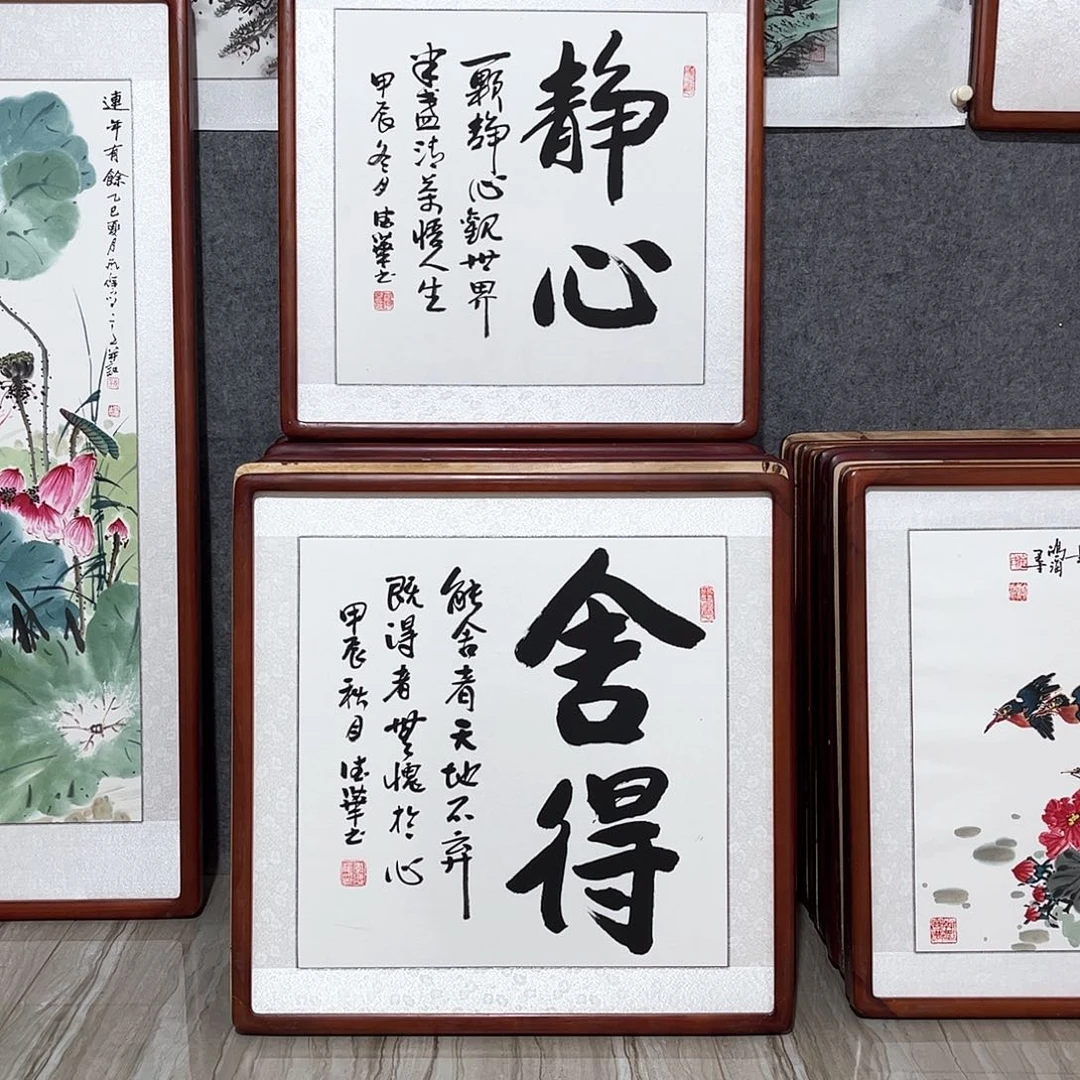 静心
一颗静心觀世界
半盞清茶悟人生
甲辰冬月德華书
舍得
能舍者天地不弃
既得者無愧於心
甲辰秋月德華书
連年有餘乙巳夏月